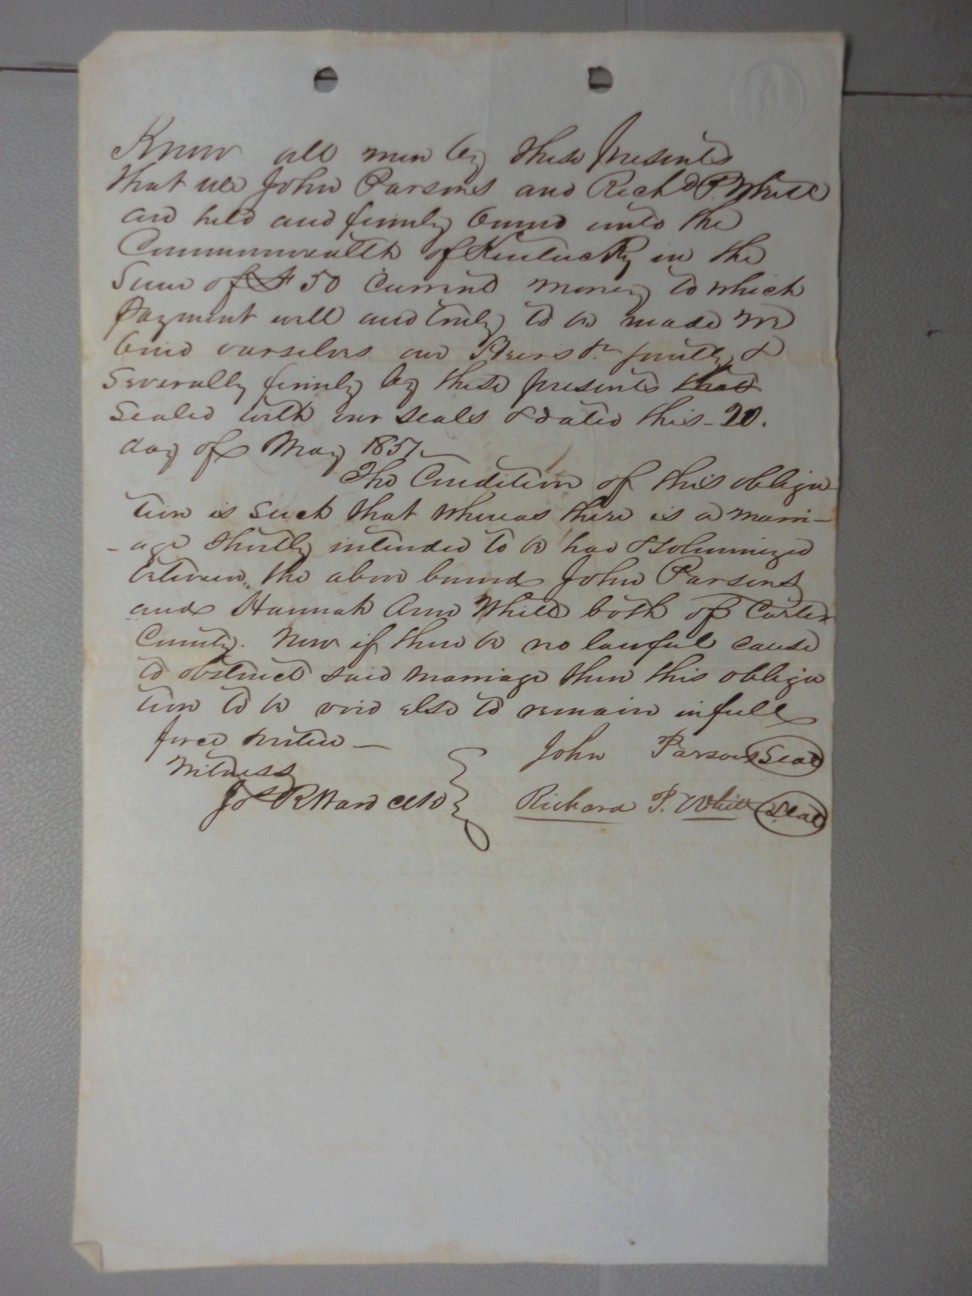 Know all men by these presents
that we John Parsons and Richd P. White
are held and firmly bound unto the
Commonwealth of Kentucky in the
Sum of $50 current money to which
Payment well and truly to be made we
bind ourselves our Heirs &c jointly &
Severally firmly by these presents
Sealed with our seals & dated this 20.
day of May 1857
The Condition of this obliga
tion is such that whereas there is a marri-
-age shortly intended to be had & solumnized
between the above bound John Parsons
and Hannah Ann White both of Carter
County. Now if there be no lawful cause
to obstruct said marriage then this obliga
tion to be void else to remain in full
force
Witness
Jos R Ward
John Parsons Seal
Richard P. White Seal